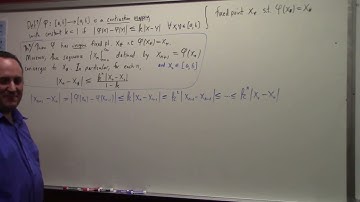 Def: φ: [a,b] → [a,b] is a contraction mapping
with constant k < 1 if |φ(x) − φ(y)| ≤ k|x − y| ∀ x,y ∈ [a,b]
fixed point x* s.t. φ(x*) = x*
Then φ has unique fixed pt. x* st φ(x*) = x*.
Moreover, the sequence defined by xn+1 = φ(xn)
converges to x*. In particular, for each n, and x0 ∈ [a,b]
|xn − x*| ≤ k^n |x1 − x0| / 1 − k
|xn+1 − xn| = |φ(xn) − φ(xn-1)| ≤ k|xn − xn-1| ≤ k² |xn-1 − xn-2| ≤ ... ≤ k^n |x1 − x0|